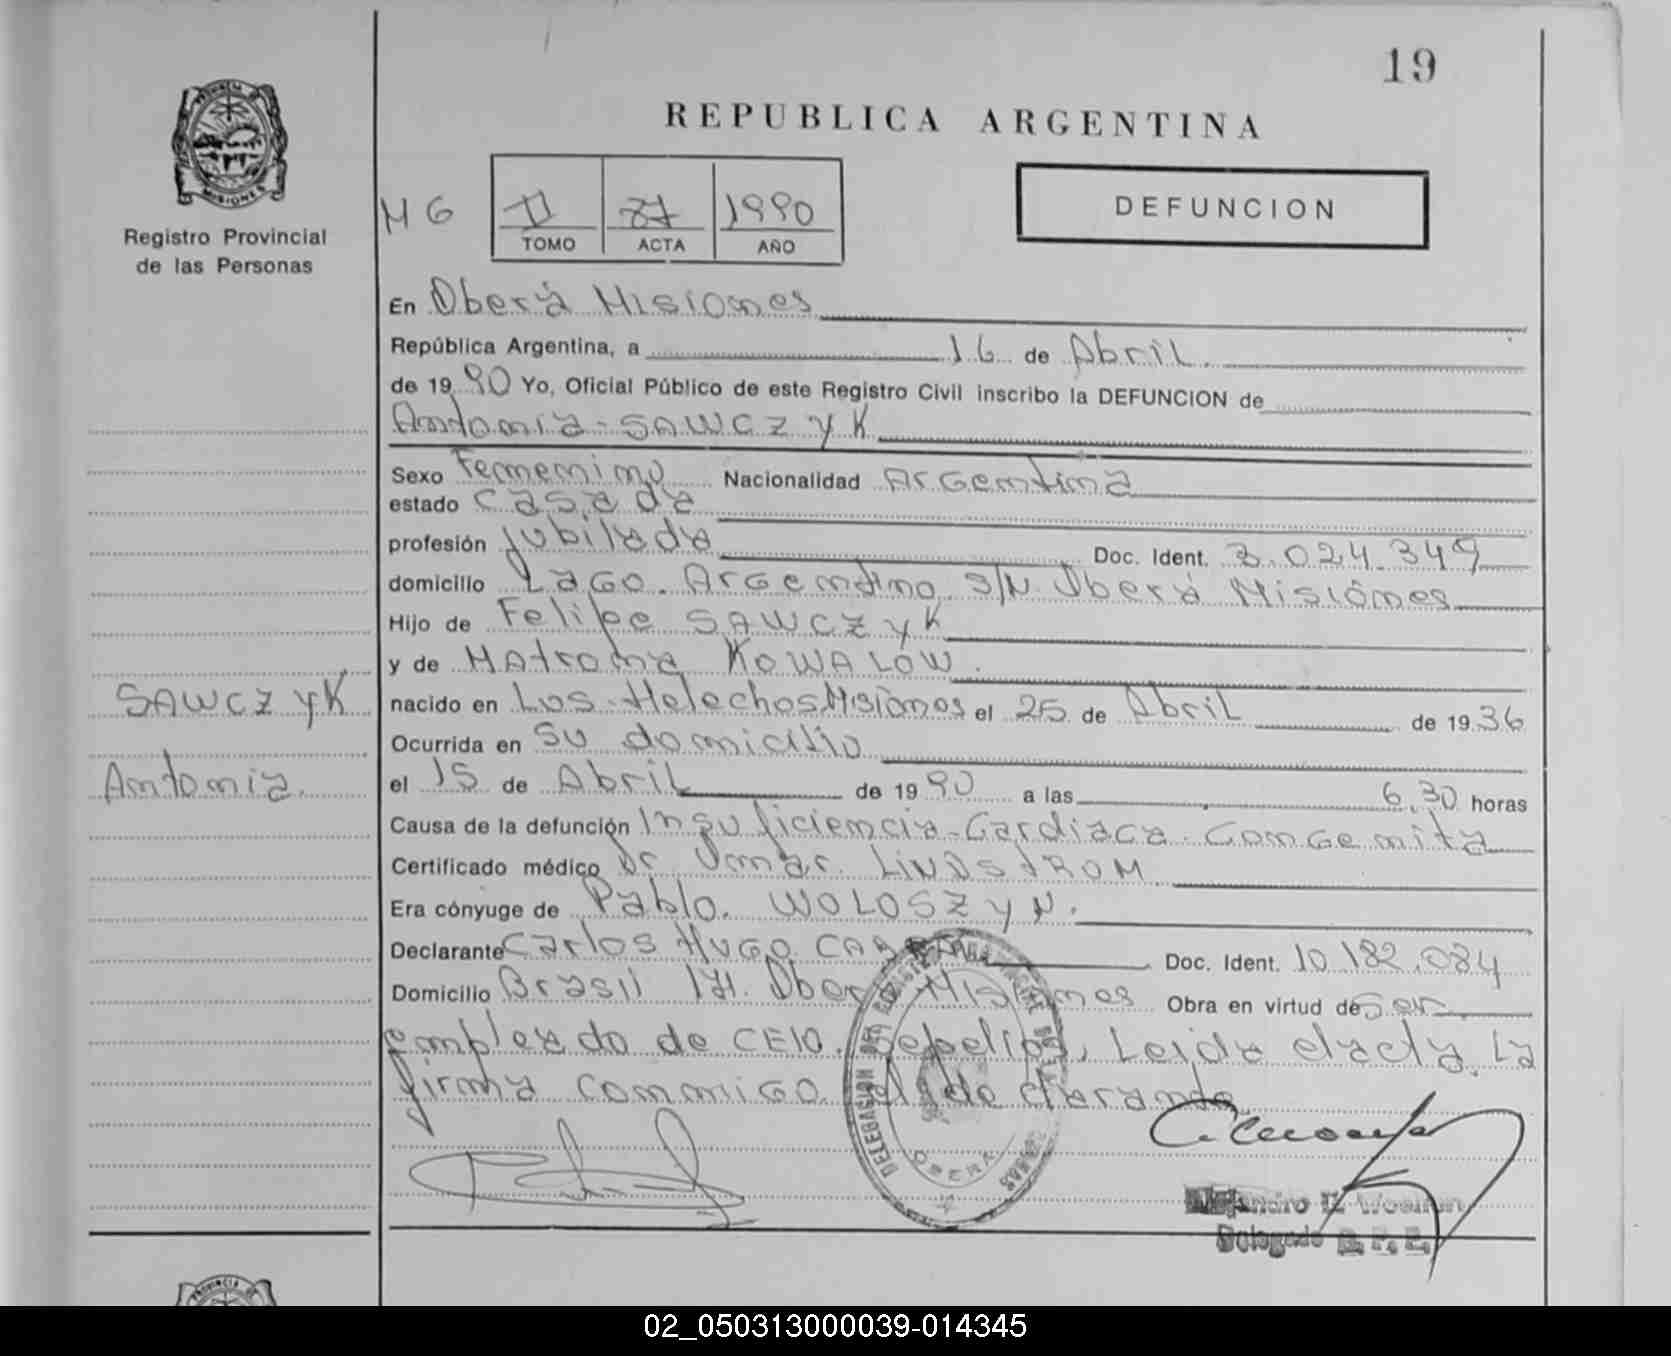 19
REPUBLICA ARGENTINA
PROVINCIA DE MISIONES
Registro Provincial
de las Personas
MG
II 87 1990
TOMO ACTA AÑO
DEFUNCION
En Oberá Misiones
República Argentina, a 16 de Abril
de 1990 Yo, Oficial Público de este Registro Civil inscribo la DEFUNCION de
Antonia - SAWCZYK
Sexo Femenino Nacionalidad Argentina
estado casada
profesión Jubilada Doc. Ident. 3.024.349
domicilio Lago Argentino S/N. Oberá Misiones
Hijo de Felipe SAWCZYK
y de Matrona KOWALOW.
nacido en Los Helechos Misiones el 25 de Abril de 1936
Ocurrida en su domicilio
el 15 de Abril de 1990 a las 6,30 horas
Causa de la defunción Insuficiencia - Cardiaca - Congenita
Certificado médico Dr Omar LINDSTROM
Era cónyuge de Pablo. WOLOSZYN.
Declarante Carlos Hugo Doc. Ident. 10.182.084
Domicilio Brasil 171. Oberá Misiones Obra en virtud de Ser
empleado de CElO. Sepelios, Leida el acta, La
firma conmigo el declarante
SAWCZYK
Antonia
DELEGACION DEL
OBERA
Alejandro
Delegado R. P. P.
02_050313000039-014345